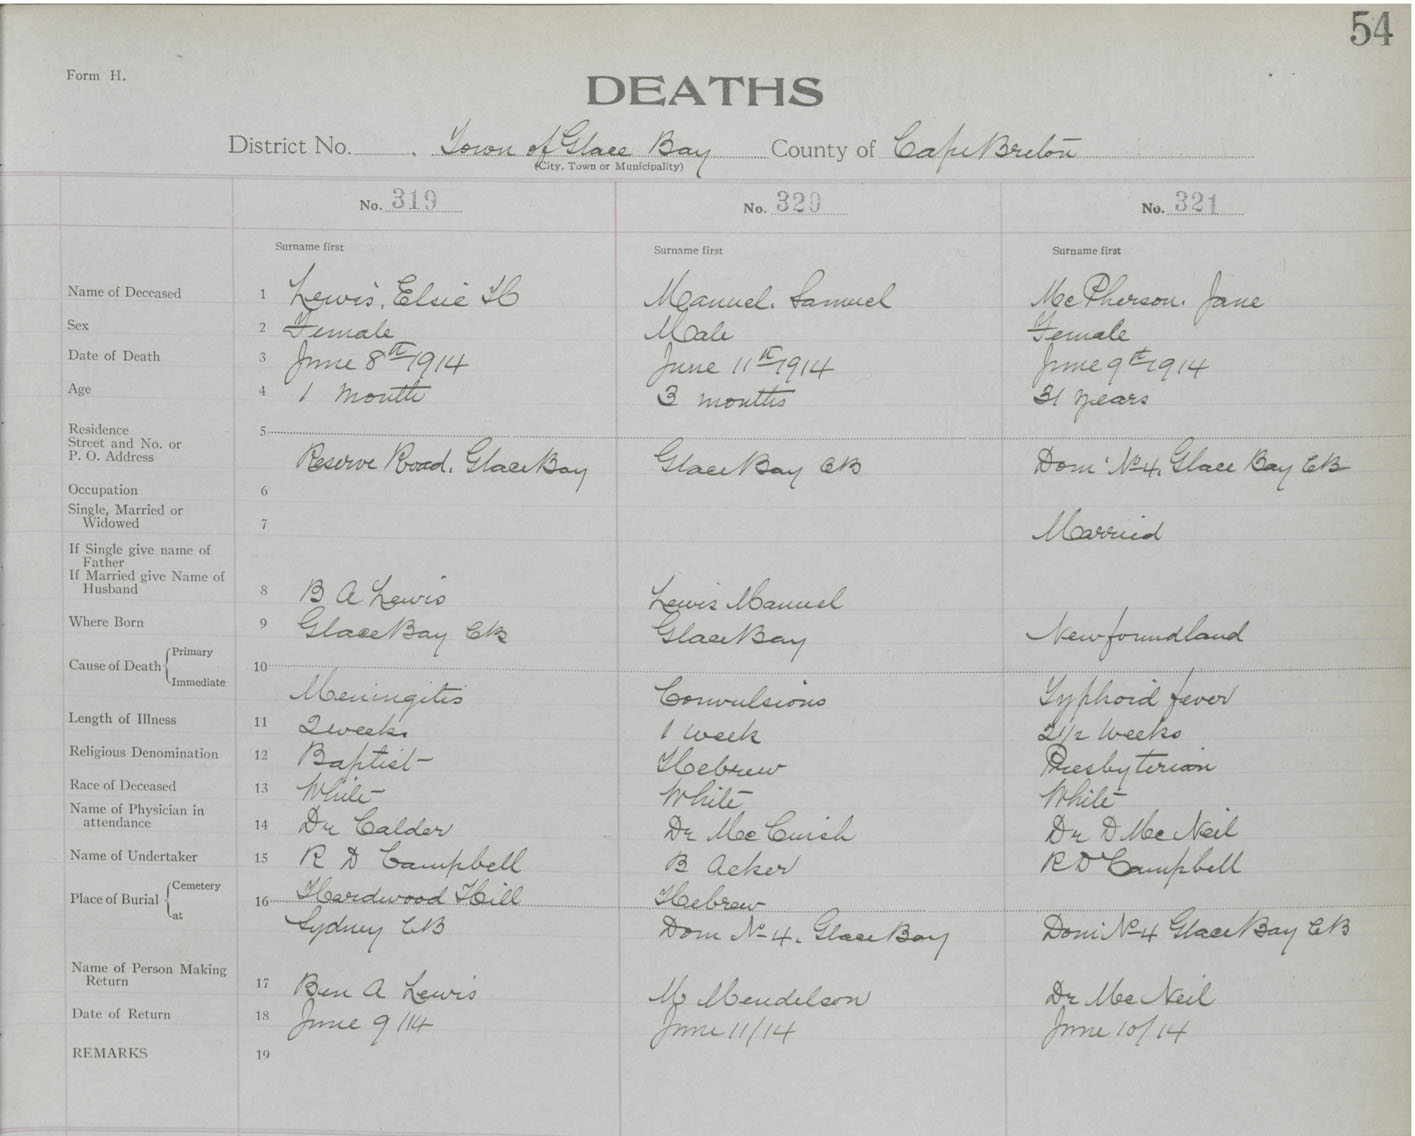 54
Form H.
DEATHS
District No. . Town of Glace Bay County of Cape Breton
(City, Town or Municipality)
No. 319 No. 320 No. 321
Surname first Surname first Surname first
Name of Deceased 1 Lewis, Elsie H Manuel. Samuel McPherson. Jane
Sex 2 Female Male Female
Date of Death 3 June 8th 1914 June 11th 1914 June 9th 1914
Age 4 1 month 3 months 31 years
Residence 5
Street and No. or
P. O. Address Reserve Road, Glace Bay Glace Bay CB Dom No 4, Glace Bay CB
Occupation 6
Single, Married or
Widowed 7 Married
If Single give name of
Father
If Married give Name of
Husband 8 B A Lewis Lewis Manuel
Where Born 9 Glace Bay CB Glace Bay Newfoundland
Cause of Death { Primary 10
Immediate Meningitis Convulsions Typhoid fever
Length of Illness 11 2 weeks 1 week 2 1/2 weeks
Religious Denomination 12 Baptist Hebrew Presbyterian
Race of Deceased 13 White White White
Name of Physician in
attendance 14 Dr Calder Dr McCuish Dr D McNeil
Name of Undertaker 15 R D Campbell B Acker R D Campbell
Place of Burial { Cemetery 16 Hardwood Hill Hebrew
at Sydney CB Dom No 4, Glace Bay Dom No 4 Glace Bay CB
Name of Person Making
Return 17 Ben A Lewis M Mendelson Dr McNeil
Date of Return 18 June 9/14 June 11/14 June 10/14
REMARKS 19